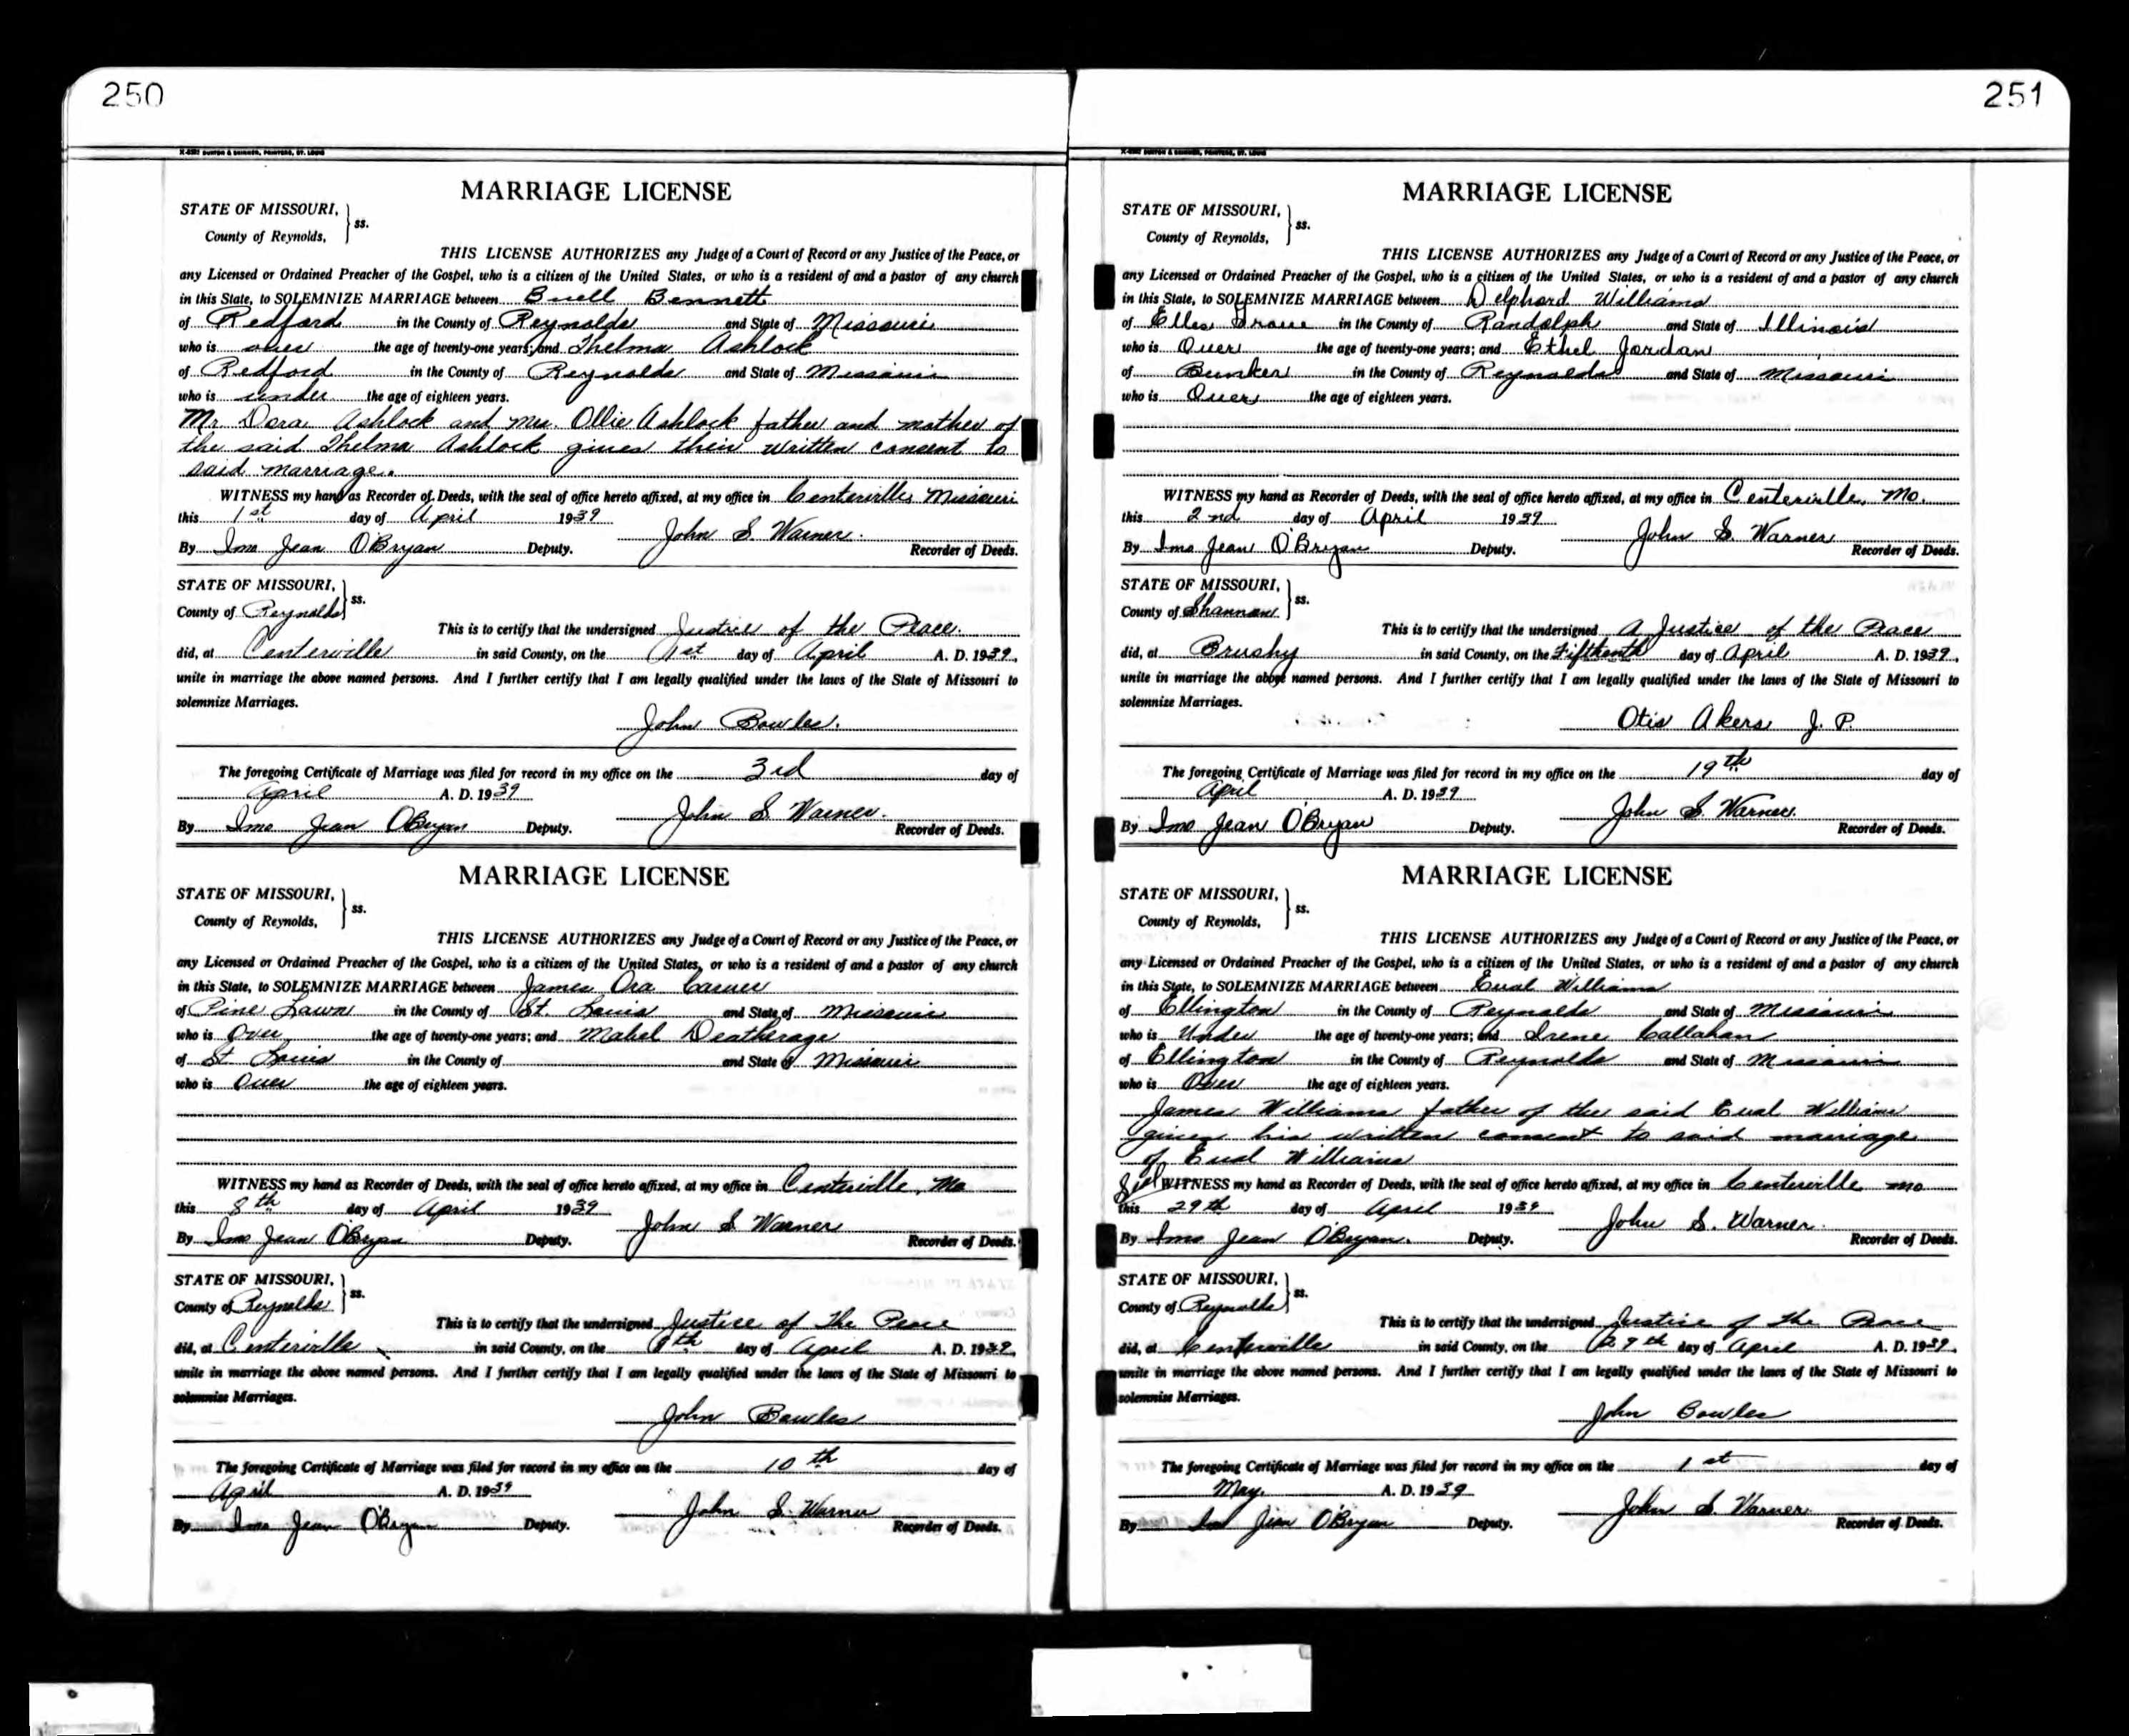 250
K-5302 BUXTON & SKINNER, PRINTERS, ST. LOUIS
MARRIAGE LICENSE
STATE OF MISSOURI,
County of Reynolds, } ss.
THIS LICENSE AUTHORIZES any Judge of a Court of Record or any Justice of the Peace, or
any Licensed or Ordained Preacher of the Gospel, who is a citizen of the United States, or who is a resident of and a pastor of any church
in this State, to SOLEMNIZE MARRIAGE between Buell Bennett
of Redford in the County of Reynolds and State of Missouri
who is over the age of twenty-one years; and Thelma Ashlock
of Redford in the County of Reynolds and State of Missouri
who is under the age of eighteen years.
Mr. Dora Ashlock and Mrs. Ollie Ashlock father and mother of
the said Thelma Ashlock gives their written consent to
said marriage.
WITNESS my hand as Recorder of Deeds, with the seal of office hereto affixed, at my office in Centerville Missouri
this 1st day of April 1939 John S. Warner.
By Imo Jean O'Bryan Deputy. Recorder of Deeds.
STATE OF MISSOURI,
County of Reynolds } ss.
This is to certify that the undersigned Justice of the Peace.
did, at Centerville in said County, on the 1st day of April A. D. 1939,
unite in marriage the above named persons. And I further certify that I am legally qualified under the laws of the State of Missouri to
solemnize Marriages.
John Bowles.
The foregoing Certificate of Marriage was filed for record in my office on the 3rd day of
April A. D. 1939
John S. Warner.
By Imo Jean O'Bryan Deputy. Recorder of Deeds.
MARRIAGE LICENSE
STATE OF MISSOURI,
County of Reynolds, } ss.
THIS LICENSE AUTHORIZES any Judge of a Court of Record or any Justice of the Peace, or
any Licensed or Ordained Preacher of the Gospel, who is a citizen of the United States, or who is a resident of and a pastor of any church
in this State, to SOLEMNIZE MARRIAGE between James Ora Carver
of Pine Lawn in the County of St. Louis and State of Missouri
who is Over the age of twenty-one years; and Mabel Deatherage
of St Louis in the County of and State of Missouri
who is Over the age of eighteen years.
WITNESS my hand as Recorder of Deeds, with the seal of office hereto affixed, at my office in Centerville, Mo
this 8th day of April 1939 John S. Warner
By Imo Jean O'Bryan Deputy. Recorder of Deeds.
STATE OF MISSOURI,
County of Reynolds } ss.
This is to certify that the undersigned Justice of The Peace
did, at Centerville in said County, on the 8th day of April A. D. 1939,
unite in marriage the above named persons. And I further certify that I am legally qualified under the laws of the State of Missouri to
solemnize Marriages.
John Bowles
The foregoing Certificate of Marriage was filed for record in my office on the 10th day of
April A. D. 1939
John S. Warner
By Imo Jean O'Bryan Deputy. Recorder of Deeds.
251
K-5302 BUXTON & SKINNER, PRINTERS, ST. LOUIS
MARRIAGE LICENSE
STATE OF MISSOURI,
County of Reynolds, } ss.
THIS LICENSE AUTHORIZES any Judge of a Court of Record or any Justice of the Peace, or
any Licensed or Ordained Preacher of the Gospel, who is a citizen of the United States, or who is a resident of and a pastor of any church
in this State, to SOLEMNIZE MARRIAGE between Delphard Williams
of Elles Grove in the County of Randolph and State of Illinois
who is Over the age of twenty-one years; and Ethel Jordan
of Bunker in the County of Reynolds and State of Missouri
who is Over the age of eighteen years.
WITNESS my hand as Recorder of Deeds, with the seal of office hereto affixed, at my office in Centerville, Mo.
this 2nd day of April 1939 John S. Warner
By Imo Jean O'Bryan Deputy. Recorder of Deeds.
STATE OF MISSOURI,
County of Shannon } ss.
This is to certify that the undersigned A Justice of the Peace
did, at Brushy in said County, on the Fifthenth day of April A. D. 1939,
unite in marriage the above named persons. And I further certify that I am legally qualified under the laws of the State of Missouri to
solemnize Marriages.
Otis Akers J. P.
The foregoing Certificate of Marriage was filed for record in my office on the 19th day of
April A. D. 1939
John S. Warner.
By Imo Jean O'Bryan Deputy. Recorder of Deeds.
MARRIAGE LICENSE
STATE OF MISSOURI,
County of Reynolds, } ss.
THIS LICENSE AUTHORIZES any Judge of a Court of Record or any Justice of the Peace, or
any Licensed or Ordained Preacher of the Gospel, who is a citizen of the United States, or who is a resident of and a pastor of any church
in this State, to SOLEMNIZE MARRIAGE between Eual Williams
of Ellington in the County of Reynolds and State of Missouri
who is Under the age of twenty-one years; and Irene Callahan
of Ellington in the County of Reynolds and State of Missouri
who is Over the age of eighteen years.
James Williams father of the said Eual Williams
gives his written consent to said marriage
of Eual Williams
WITNESS my hand as Recorder of Deeds, with the seal of office hereto affixed, at my office in Centerville Mo
this 29th day of April 1939 John S. Warner.
By Imo Jean O'Bryan. Deputy. Recorder of Deeds.
STATE OF MISSOURI,
County of Reynolds } ss.
This is to certify that the undersigned Justice of the Peace
did, at Centerville in said County, on the 29th day of April A. D. 1939,
unite in marriage the above named persons. And I further certify that I am legally qualified under the laws of the State of Missouri to
solemnize Marriages.
John Bowles
The foregoing Certificate of Marriage was filed for record in my office on the 1st day of
May. A. D. 1939
John S. Warner.
By Imo Jean O'Bryan Deputy. Recorder of Deeds.